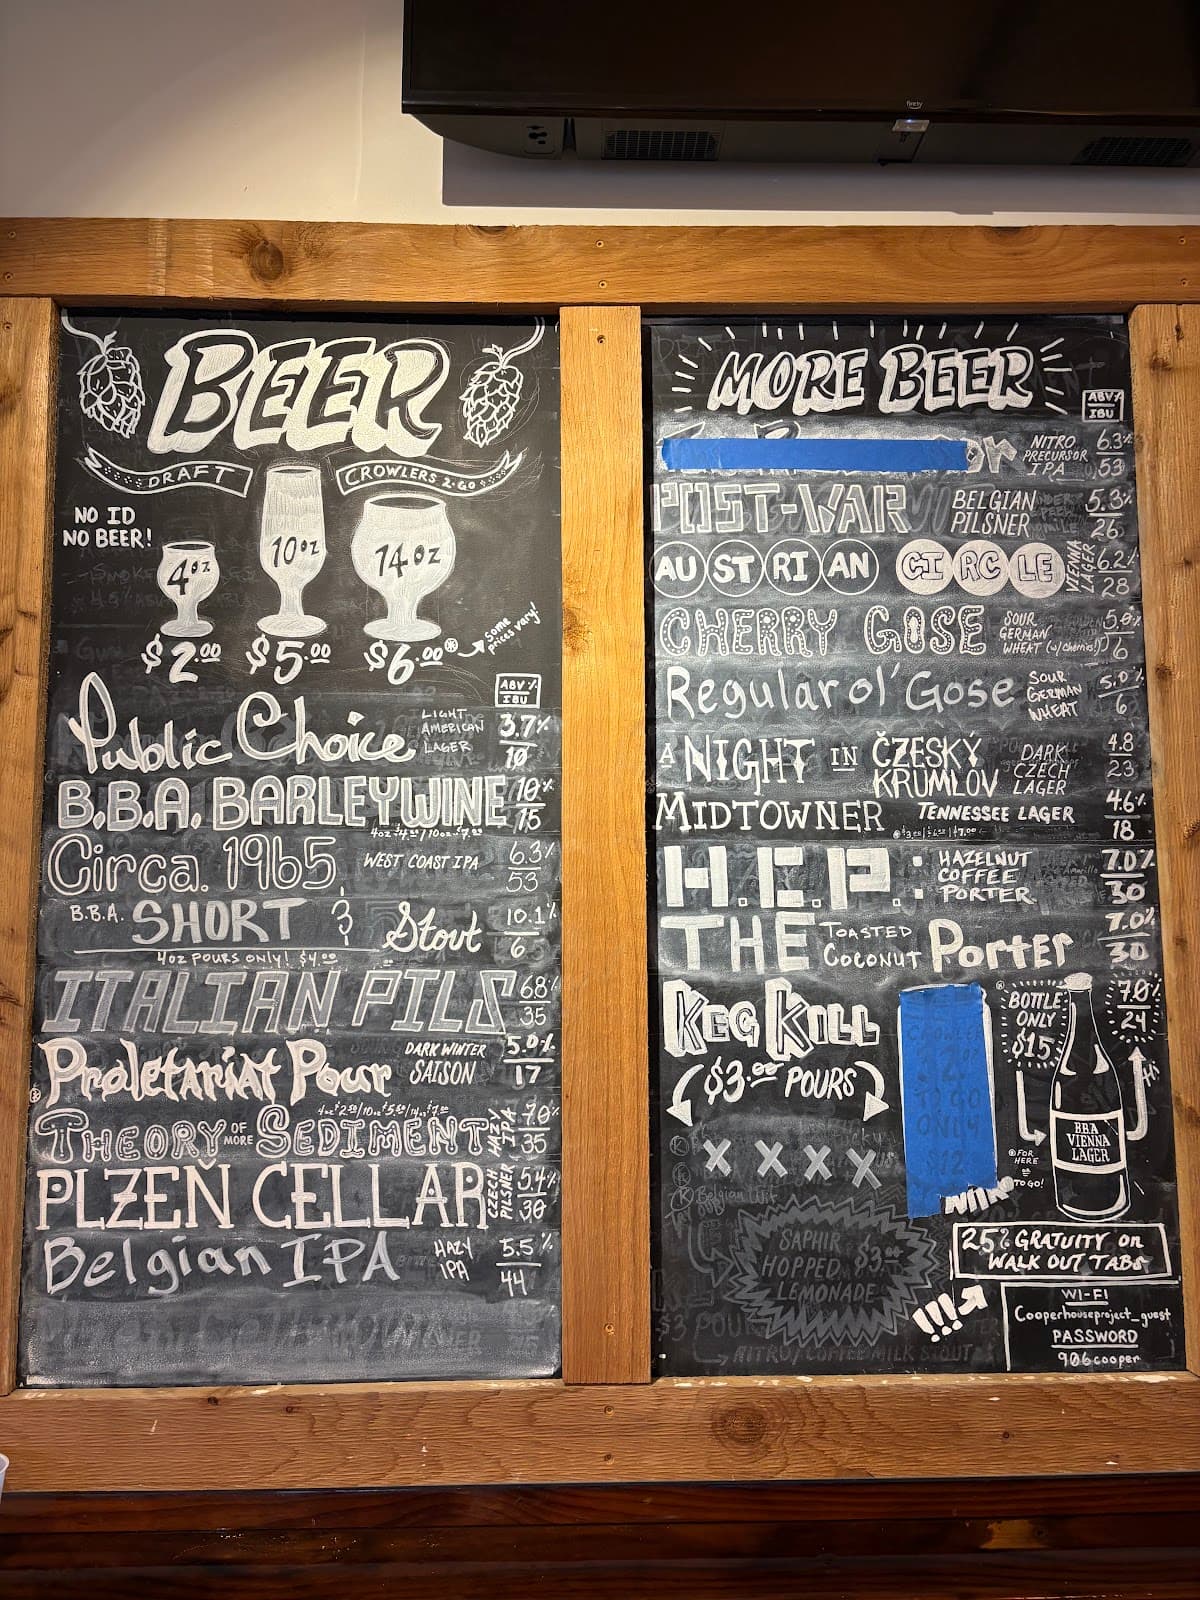 BEER
DRAFT
CROWLERS 2-GO
NO ID
NO BEER!
4oz
10oz
14oz
$2.00 $5.00 $6.00*
some
prices vary!
ABV%
IBU
Public Choice LIGHT AMERICAN LAGER 3.7% 10
B.B.A. BARLEYWINE 10% 15
4oz $4.00 / 10oz $7.00
Circa. 1965 WEST COAST IPA 6.3% 53
B.B.A. SHORT & Stout 10.1% 6
4oz POURS ONLY! $4.00
ITALIAN PILS 6.8% 35
Proletariat Pour DARK WINTER SAISON 5.0% 17
4oz $2.50/10oz $5.50/14oz $7.00
THEORY OF MORE SEDIMENT HAZY IPA 7.0% 35
PLZEŇ CELLAR CZECH PILSNER 5.4% 30
Belgian IPA HAZY IPA 5.5% 44
MORE BEER
ABV%
IBU
NITRO PRECURSOR IPA 6.3% 53
POST-WAR BELGIAN PILSNER 5.3% 26
AUSTRIAN CIRCLE VIENNA LAGER 6.2% 28
CHERRY GOSE SOUR GERMAN WHEAT (w/cherries!) 5.0% 6
Regular ol' Gose SOUR GERMAN WHEAT 5.0% 6
A NIGHT IN ČZESKÝ KRUMLOV DARK CZECH LAGER 4.8 23
MIDTOWNER TENNESSEE LAGER 4.6% 18
H.C.P.: HAZELNUT COFFEE PORTER 7.0% 30
THE TOASTED COCONUT Porter 7.0% 30
KEG KILL
$3.00 POURS
X X X X
*BOTTLE
ONLY
$15
7.0%
24
Hi
BBA
VIENNA
LAGER
*FOR
HERE
TO GO!
NITRO
SAPHIR
HOPPED $3.00
LEMONADE
$3 POUR
NITRO/COFFEE MILK STOUT
25% GRATUITY on
WALK OUT TABS
!!!
WI-FI
Cooperhouseproject_guest
PASSWORD
906cooper